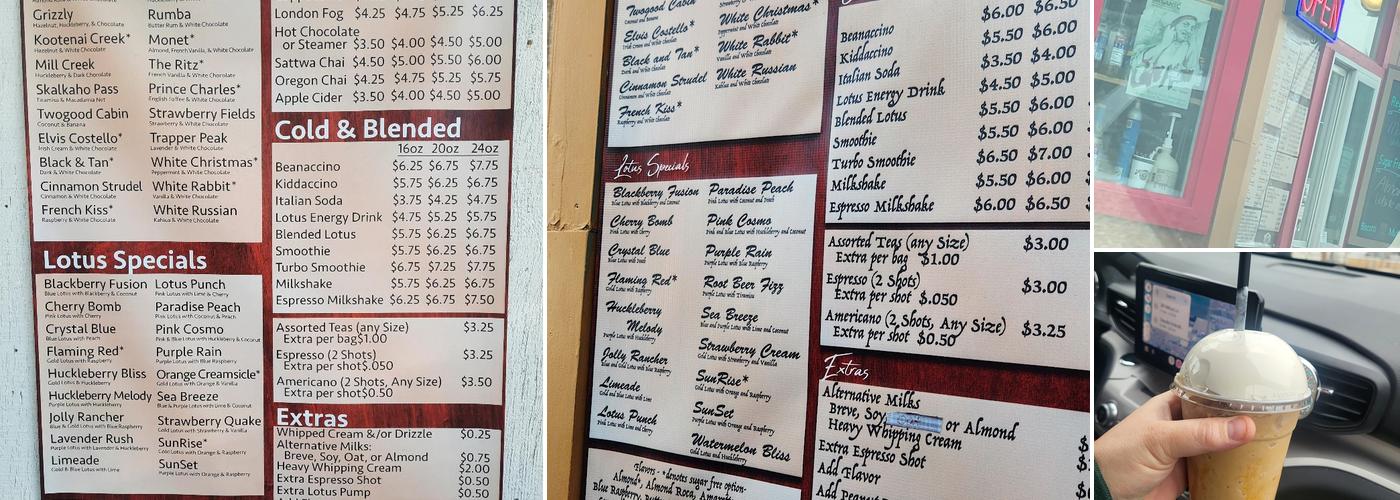 Grizzly
Hazelnut, Huckleberry, & Chocolate
Kootenai Creek*
Hazelnut & White Chocolate
Mill Creek
Huckleberry & Dark Chocolate
Skalkaho Pass
Tiramisu & Macadamia Nut
Twogood Cabin
Coconut & Banana
Elvis Costello*
Irish Cream & White Chocolate
Black & Tan*
Dark & White Chocolate
Cinnamon Strudel
Cinnamon & White Chocolate
French Kiss*
Raspberry & White Chocolate
Rumba
Butter Rum & White Chocolate
Monet*
Almond, French Vanilla, & White Chocolate
The Ritz*
French Vanilla & White Chocolate
Prince Charles*
English Toffee & White Chocolate
Strawberry Fields
Strawberry & White Chocolate
Trapper Peak
Lavender & White Chocolate
White Christmas*
Peppermint & White Chocolate
White Rabbit*
Vanilla & White Chocolate
White Russian
Kahlua & White Chocolate
Lotus Specials
Blackberry Fusion
Blue Lotus with Blackberry & Coconut
Cherry Bomb
Pink Lotus with Cherry
Crystal Blue
Blue Lotus with Peach
Flaming Red*
Gold Lotus with Raspberry
Huckleberry Bliss
Gold Lotus & Huckleberry
Huckleberry Melody
Purple Lotus with Huckleberry
Jolly Rancher
Blue & Gold Lotus with Blue Raspberry
Lavender Rush
Purple Lotus with Lavender & Huckleberry
Limeade
Gold & Blue Lotus with Lime
Lotus Punch
Pink Lotus with Lime & Cherry
Paradise Peach
Pink Lotus with Coconut & Peach
Pink Cosmo
Pink & Blue Lotus with Huckleberry & Coconut
Purple Rain
Purple Lotus with Blue Raspberry
Orange Creamsicle*
Gold Lotus with Orange & Vanilla
Sea Breeze
Blue & Purple Lotus with Lime & Coconut
Strawberry Quake
Gold Lotus with Strawberry & Vanilla
SunRise*
Gold Lotus with Orange & Raspberry
SunSet
Purple Lotus with Orange & Raspberry
London Fog $4.25 $4.75 $5.25 $6.25
Hot Chocolate
or Steamer $3.50 $4.00 $4.50 $5.00
Sattwa Chai $4.50 $5.00 $5.50 $6.00
Oregon Chai $4.25 $4.75 $5.25 $5.75
Apple Cider $3.50 $4.00 $4.50 $5.00
Cold & Blended
16oz 20oz 24oz
Beanaccino $6.25 $6.75 $7.75
Kiddaccino $5.75 $6.25 $6.75
Italian Soda $3.75 $4.25 $4.75
Lotus Energy Drink $4.75 $5.25 $5.75
Blended Lotus $5.75 $6.25 $6.75
Smoothie $5.75 $6.25 $6.75
Turbo Smoothie $6.75 $7.25 $7.75
Milkshake $5.75 $6.25 $6.75
Espresso Milkshake $6.25 $6.75 $7.50
Assorted Teas (any Size) $3.25
Extra per bag$1.00
Espresso (2 Shots) $3.25
Extra per shot$.050
Americano (2 Shots, Any Size) $3.50
Extra per shot$0.50
Extras
Whipped Cream &/or Drizzle $0.25
Alternative Milks:
Breve, Soy, Oat, or Almond $0.75
Heavy Whipping Cream $2.00
Extra Espresso Shot $0.50
Extra Lotus Pump $0.50
Twogood Cabin
Coconut and Banana
Elvis Costello*
Irish Cream and White Chocolate
Black and Tan*
Dark and White Chocolate
Cinnamon Strudel
Cinnamon and White Chocolate
French Kiss*
Raspberry and White Chocolate
White Christmas*
Peppermint and White Chocolate
White Rabbit*
Vanilla and White Chocolate
White Russian
Kahlua and White Chocolate
Lotus Specials
Blackberry Fusion
Blue Lotus with Blackberry and Coconut
Cherry Bomb
Pink Lotus with Cherry
Crystal Blue
Blue Lotus with Peach
Flaming Red*
Gold Lotus with Raspberry
Huckleberry
Melody
Purple Lotus with Huckleberry
Jolly Rancher
Blue and Gold Lotus with Blue Raspberry
Limeade
Gold and Blue Lotus with Lime
Lotus Punch
Pink Lotus with Lime and Cherry
Paradise Peach
Pink Lotus with Coconut and Peach
Pink Cosmo
Pink and Blue Lotus with Huckleberry and Coconut
Purple Rain
Purple Lotus with Blue Raspberry
Root Beer Fizz
Purple Lotus with Tiramisu
Sea Breeze
Blue and Purple Lotus with Lime and Coconut
Strawberry Cream
Gold Lotus with Strawberry and Vanilla
SunRise*
Gold Lotus with Orange and Raspberry
SunSet
Purple Lotus with Orange and Raspberry
Watermelon Bliss
Gold Lotus and Huckleberry
Flavors - *denotes sugar free option-
Almond*, Almond Roca,
Blue Raspberry,
$6.00 $6.50
Beanaccino $5.50 $6.00
Kiddaccino $3.50 $4.00
Italian Soda $4.50 $5.00
Lotus Energy Drink $5.50 $6.00
Blended Lotus $5.50 $6.00
Smoothie $6.50 $7.00
Turbo Smoothie $5.50 $6.00
Milkshake $6.00 $6.50
Espresso Milkshake
Assorted Teas (any Size) $3.00
Extra per bag $1.00
Espresso (2 Shots) $3.00
Extra per shot $.050
Americano (2 Shots, Any Size) $3.25
Extra per shot $0.50
Extras
Alternative Milks
Breve, Soy or Almond
Heavy Whipping Cream
Extra Espresso Shot
Add Flavor
Add Peanut
OPEN